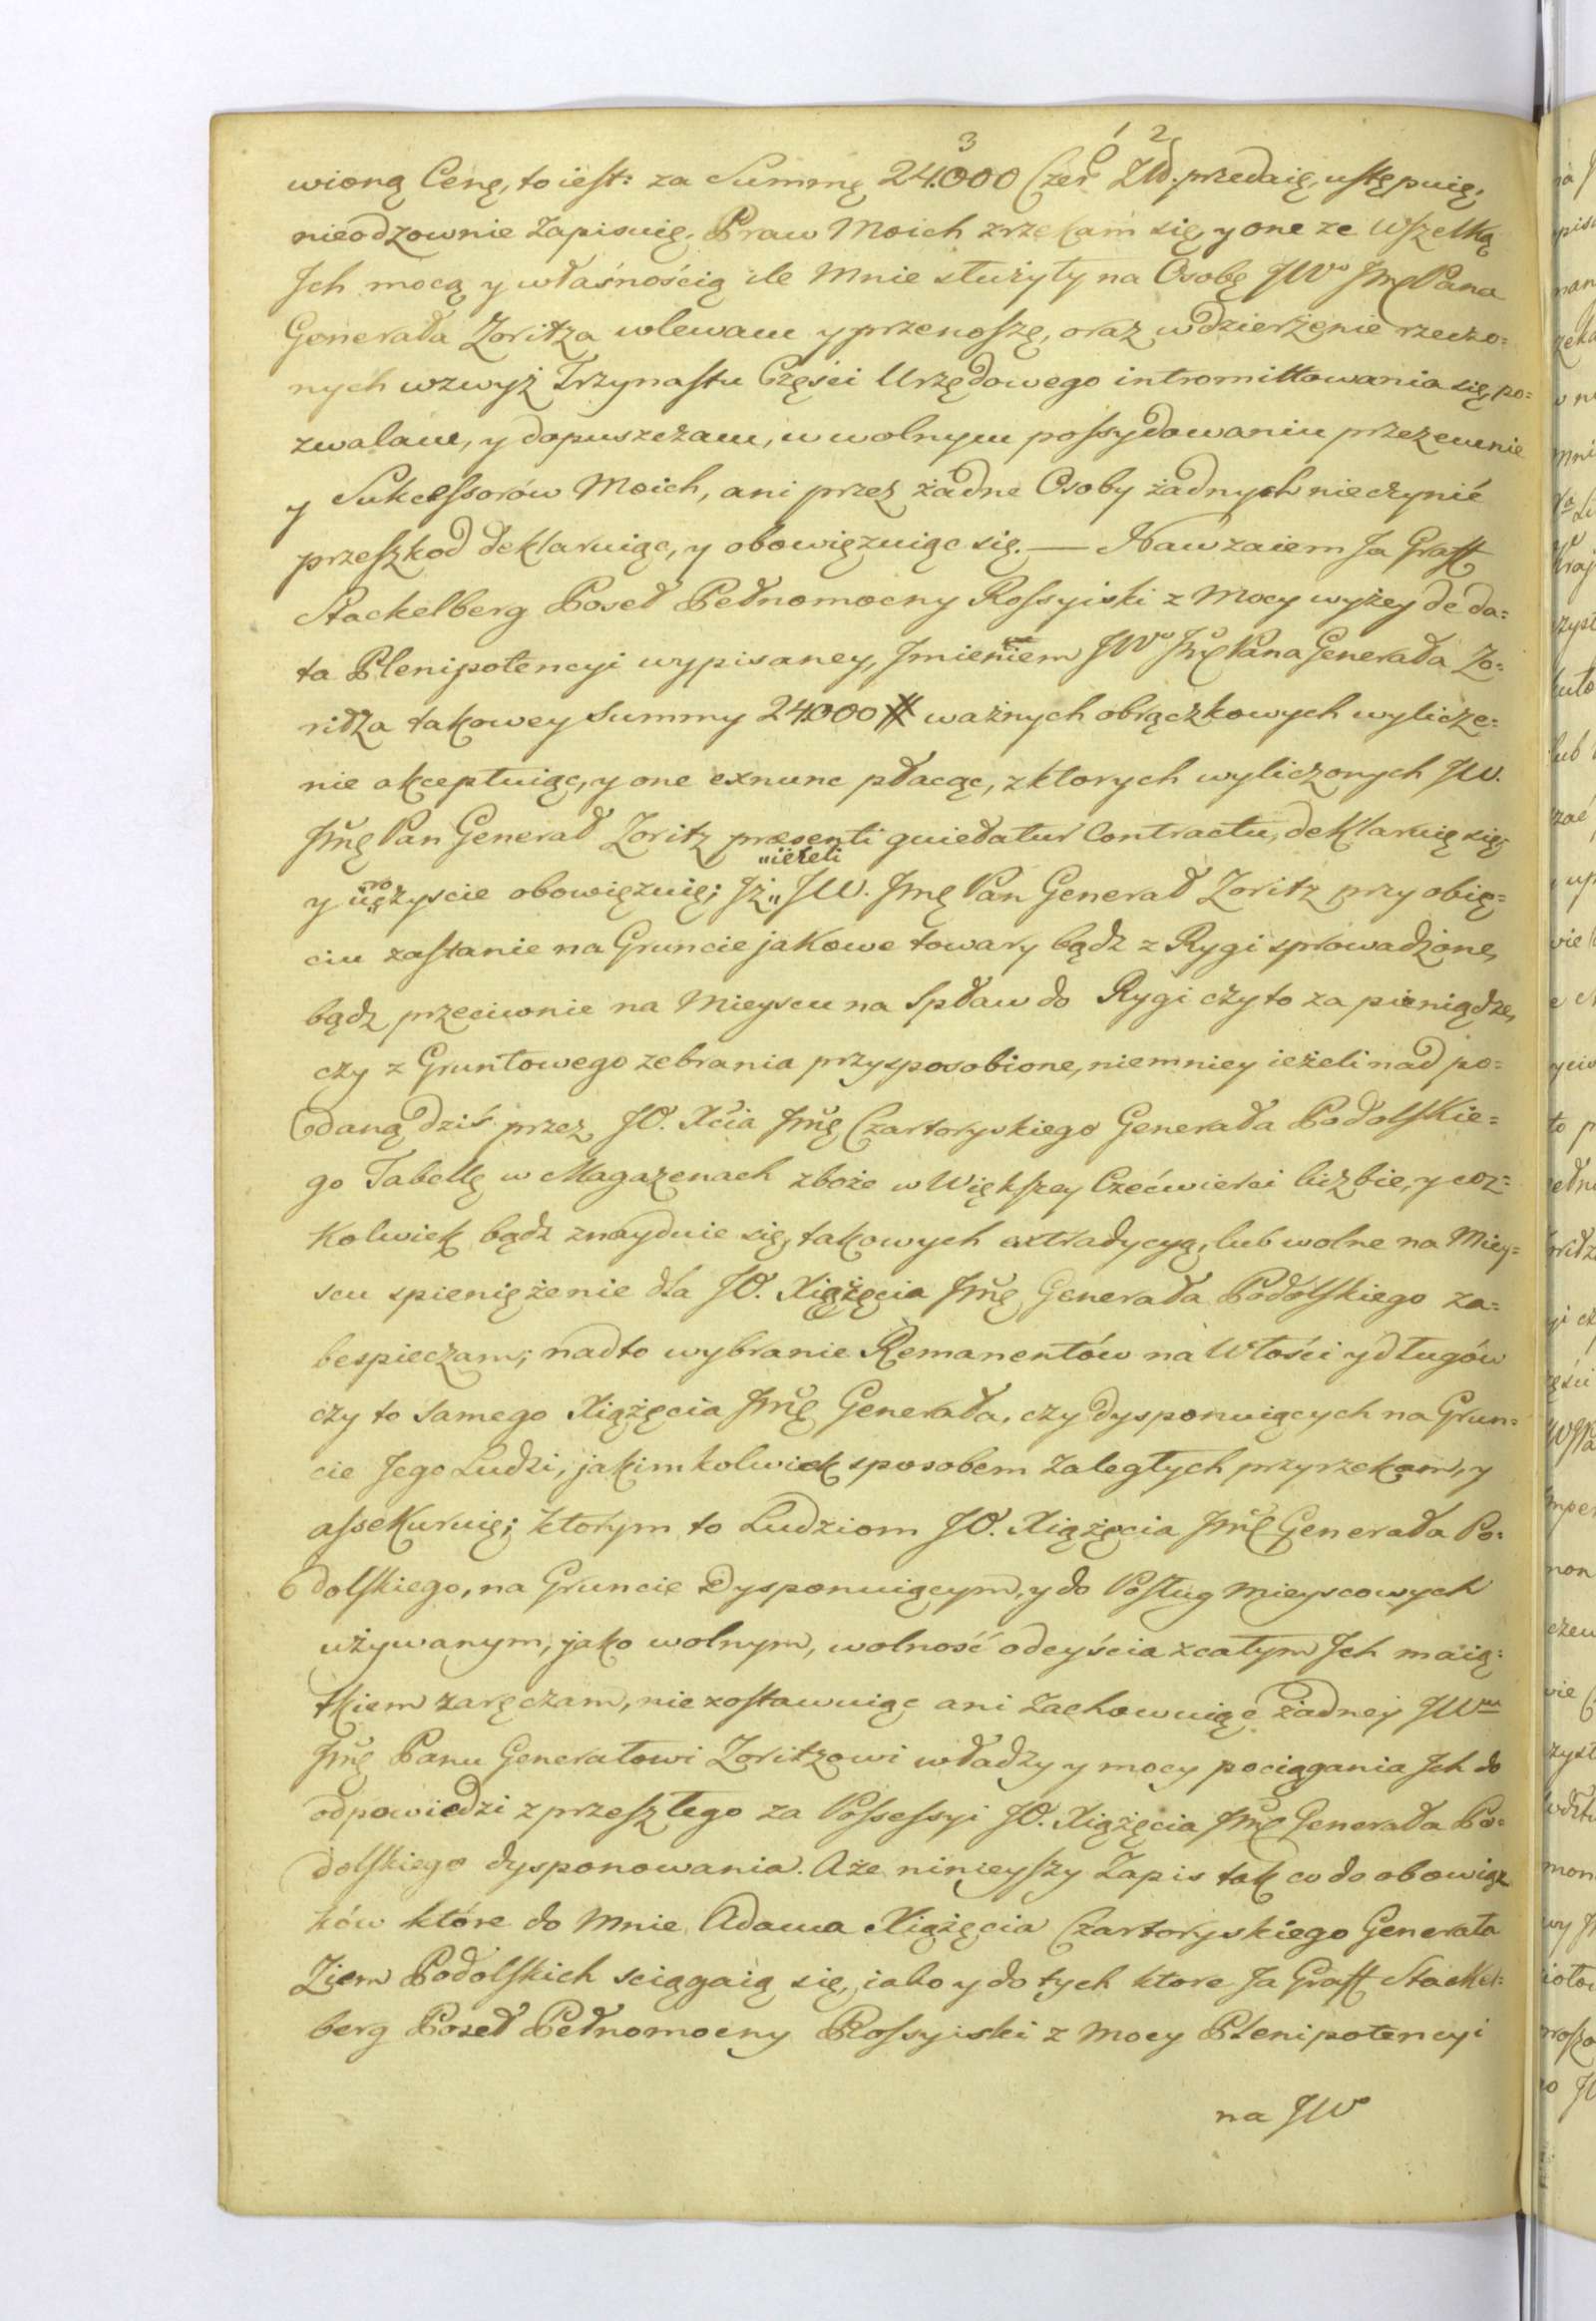 wioną Cenę, to iest: za Summę 24.000 Czer Zło. przedaię, ustępuię,
nieodzownie Zapisuię. Praw Moich zrzekam się, y one ze Wszelką
Ich mocą y własnością ile Mnie służyły na Osobę JWo Jmę Pana
Generała Zoritza wlewam y przenoszę, oraz w dzierżęnie rzeczo=
nych wzwyż Trzynastu Części Urzędowego intromittowania się, po=
zwalam, y dopuszczam, w wolnym possydowaniu przezemnie
y Sukcessorów Moich, ani przez żadne Osoby żadnych nieczynić
przeszkod deklaruiąc, y obowięzuiąc się. — Nawzaiem Ja Graff
Stackelberg Poseł Pełnomocny Rossyiski z Mocy wyżey de da=
ta Plenipotencyi wypisaney, Jmieniem JWo Jmę Pana Generała Zo=
ridza takowey Summy 24000 # ważnych obrączkowych wylicze=
nie akceptuiąc, y one exnunc płacąc, z ktorych wyliczonych JW.
Jmę Pan Generał Zoritz præsenti quietatur Contractu, deklaruię się,
„ieżeli
y uro„czyście obowięzuię; Iż„ JW. Jmę Pan Generał Zoritz przy obię=
ciu zastanie na Gruncie jakowe towary bądz z Rygi sprowadzone,
bądz przeciwnie na Mieyscu na Spław do Rygi czy to za pieniądze,
czy z Gruntowego zebrania przysposobione, niemniey ieżeli nad po=
daną dziś przez JO. Xcia Jmę Czartoryskiego Generała Podolskie=
go Tabellę w Magazenach zboże w Większey Czećwierci liczbie, y coz=
kolwiek bądz znayduie się, takowych extradycyą, lub wolne na Miey=
scu spieniężenie dla JO. Xiążęcia Jmę Generała Podolskiego za=
bespieczam; nadto wybranie Remanentów na Włości y długów
czy to Samego Xiążęcia Jmę Generała, czy dysponuiących na Grun=
cie Jego Ludzi, jakimkolwiek sposobem Zaległych przyrzekam, y
assekuruię; ktorym to Ludziom JO. Xiążęcia Jmę Generała Po=
dolskiego, na Gruncie Dysponuiącym, y do Posług mieyscowych
używanym, jako wolnym, wolność odeyścia z całym Ich maią=
tkiem zaręczam, nie zostawuiąc ani Zachowuiąc żadney JWmu
Jmę Panu Generałowi Zoritzowi władzy y mocy pociągania Ich do
odpowiedzi z przeszłego za Possessyi JO. Xiążęcia Jmę Generała Po=
dolskiego dysponowania. Aże ninieyszy Zapis tak co do obowiąz
ków które do Mnie Adama Xiążęcia Czartoryskiego Generała
Ziem Podolskich sciągaią się, iako y do tych ktore Ja Graff Stackel=
berg Poseł Pełnomocny Rossyiski z Mocy Plenipotencyi
na JWo